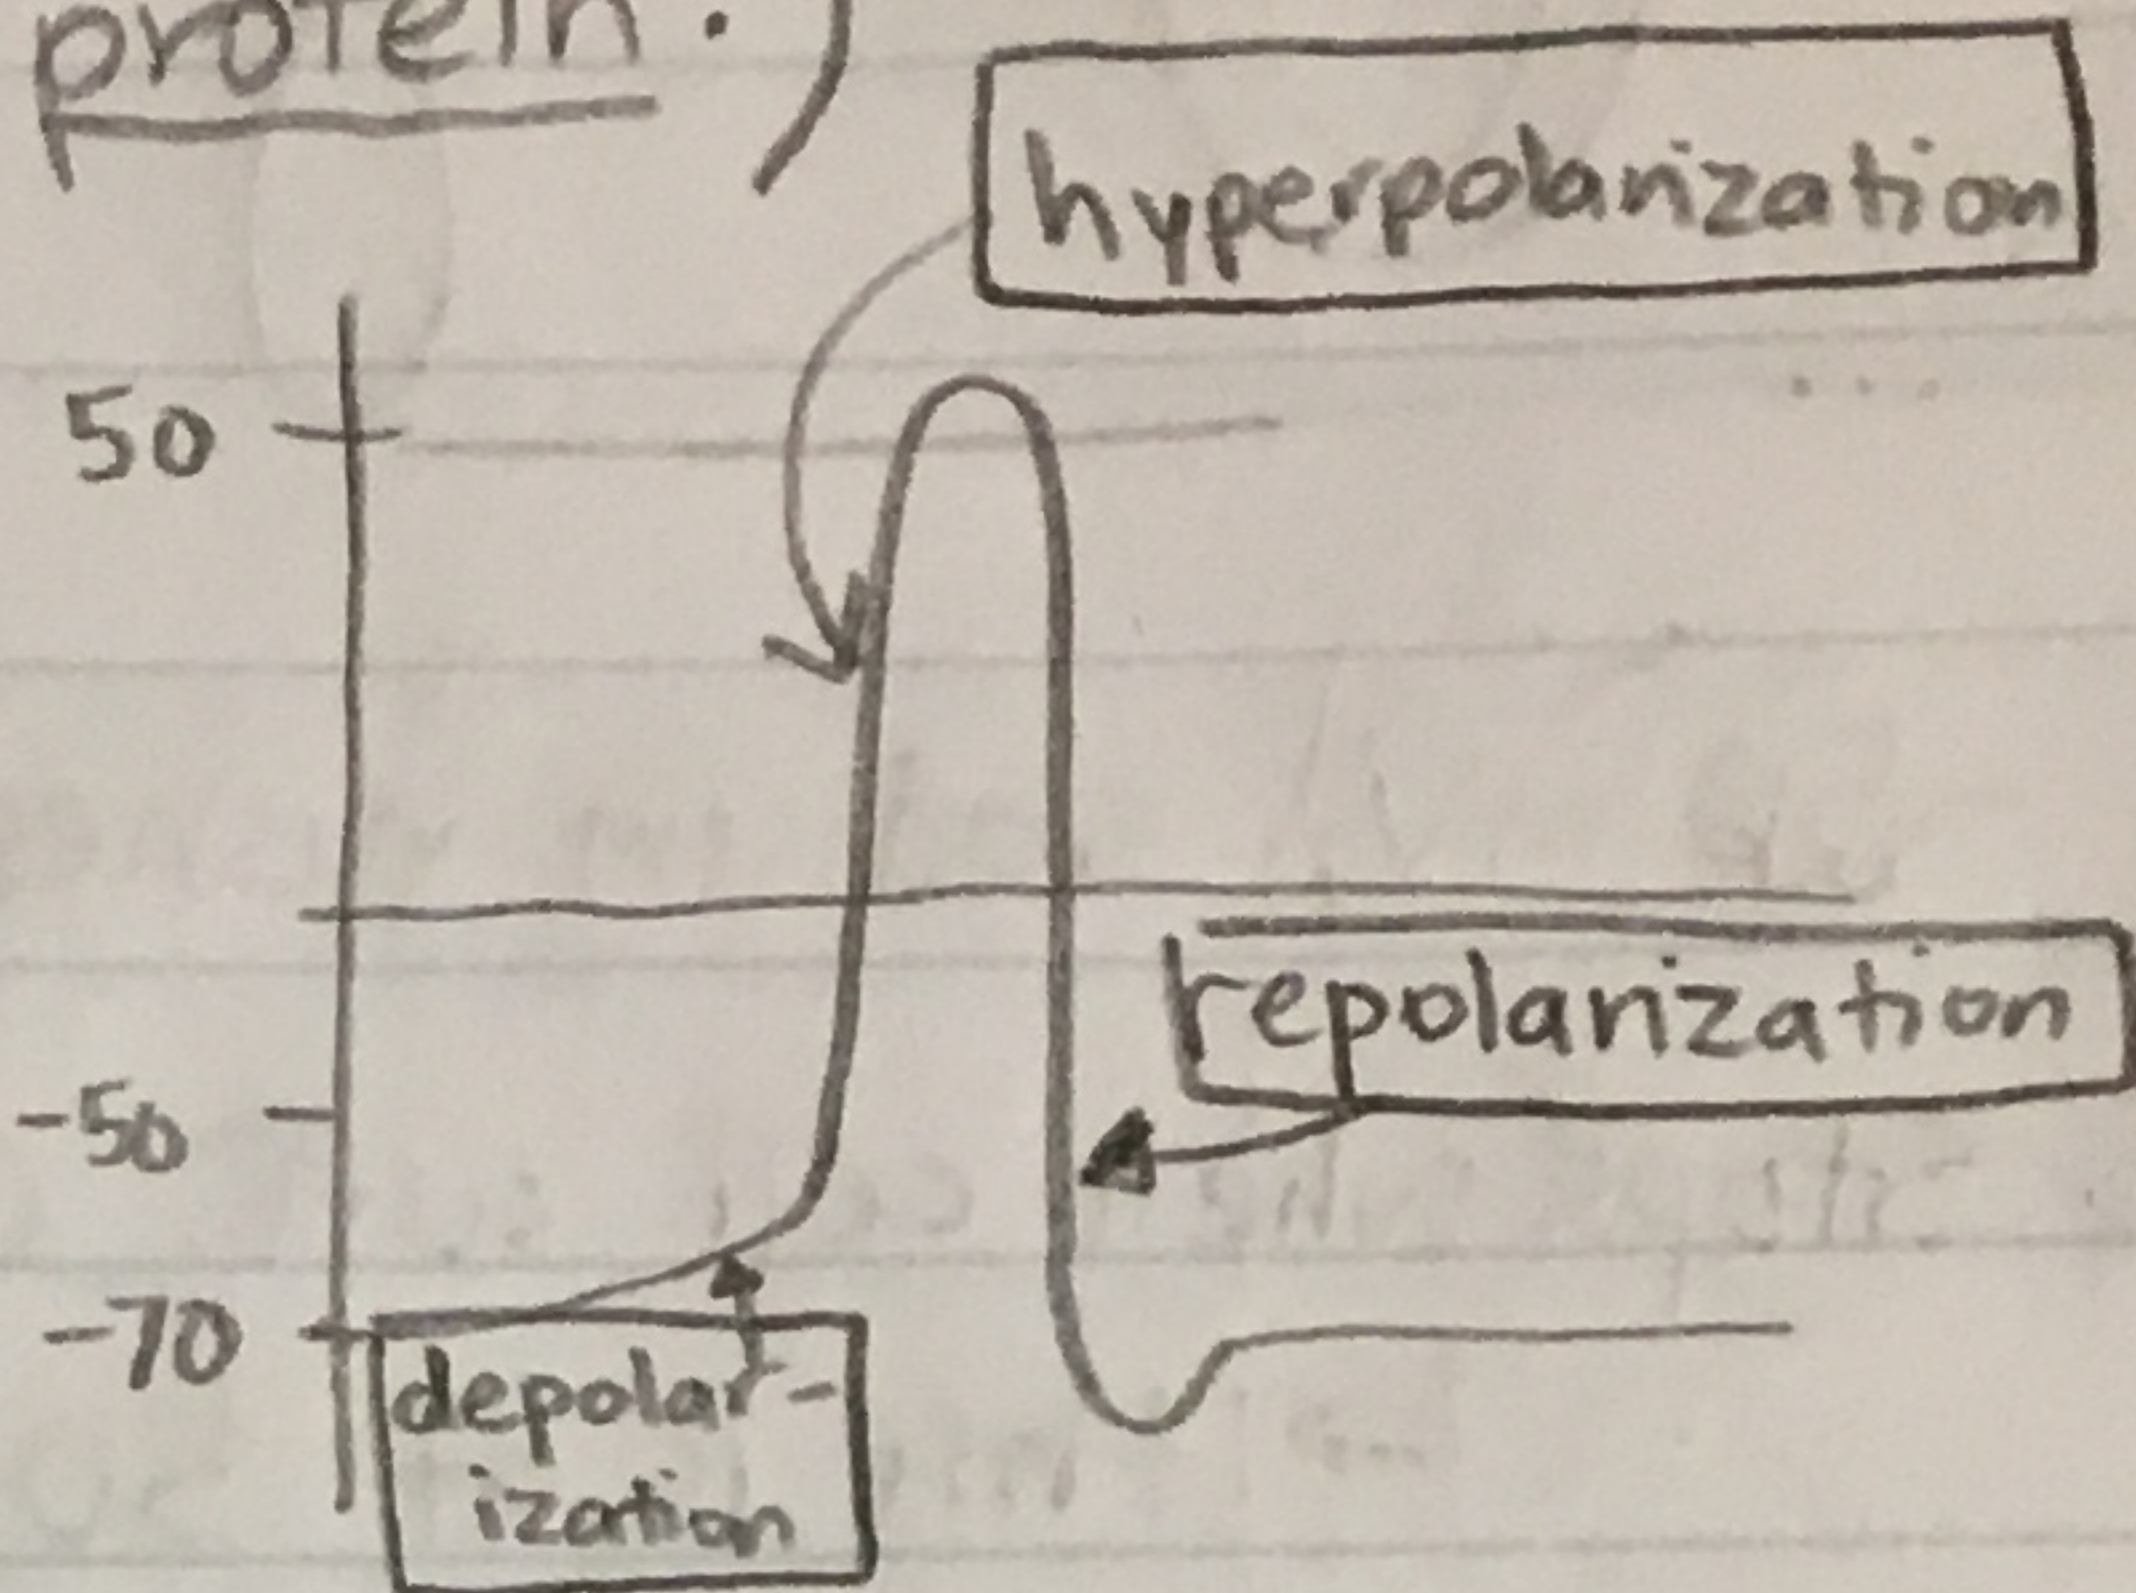 protein.)
hyperpolarization
50
...
repolarization
-50
-70
depolar-
ization